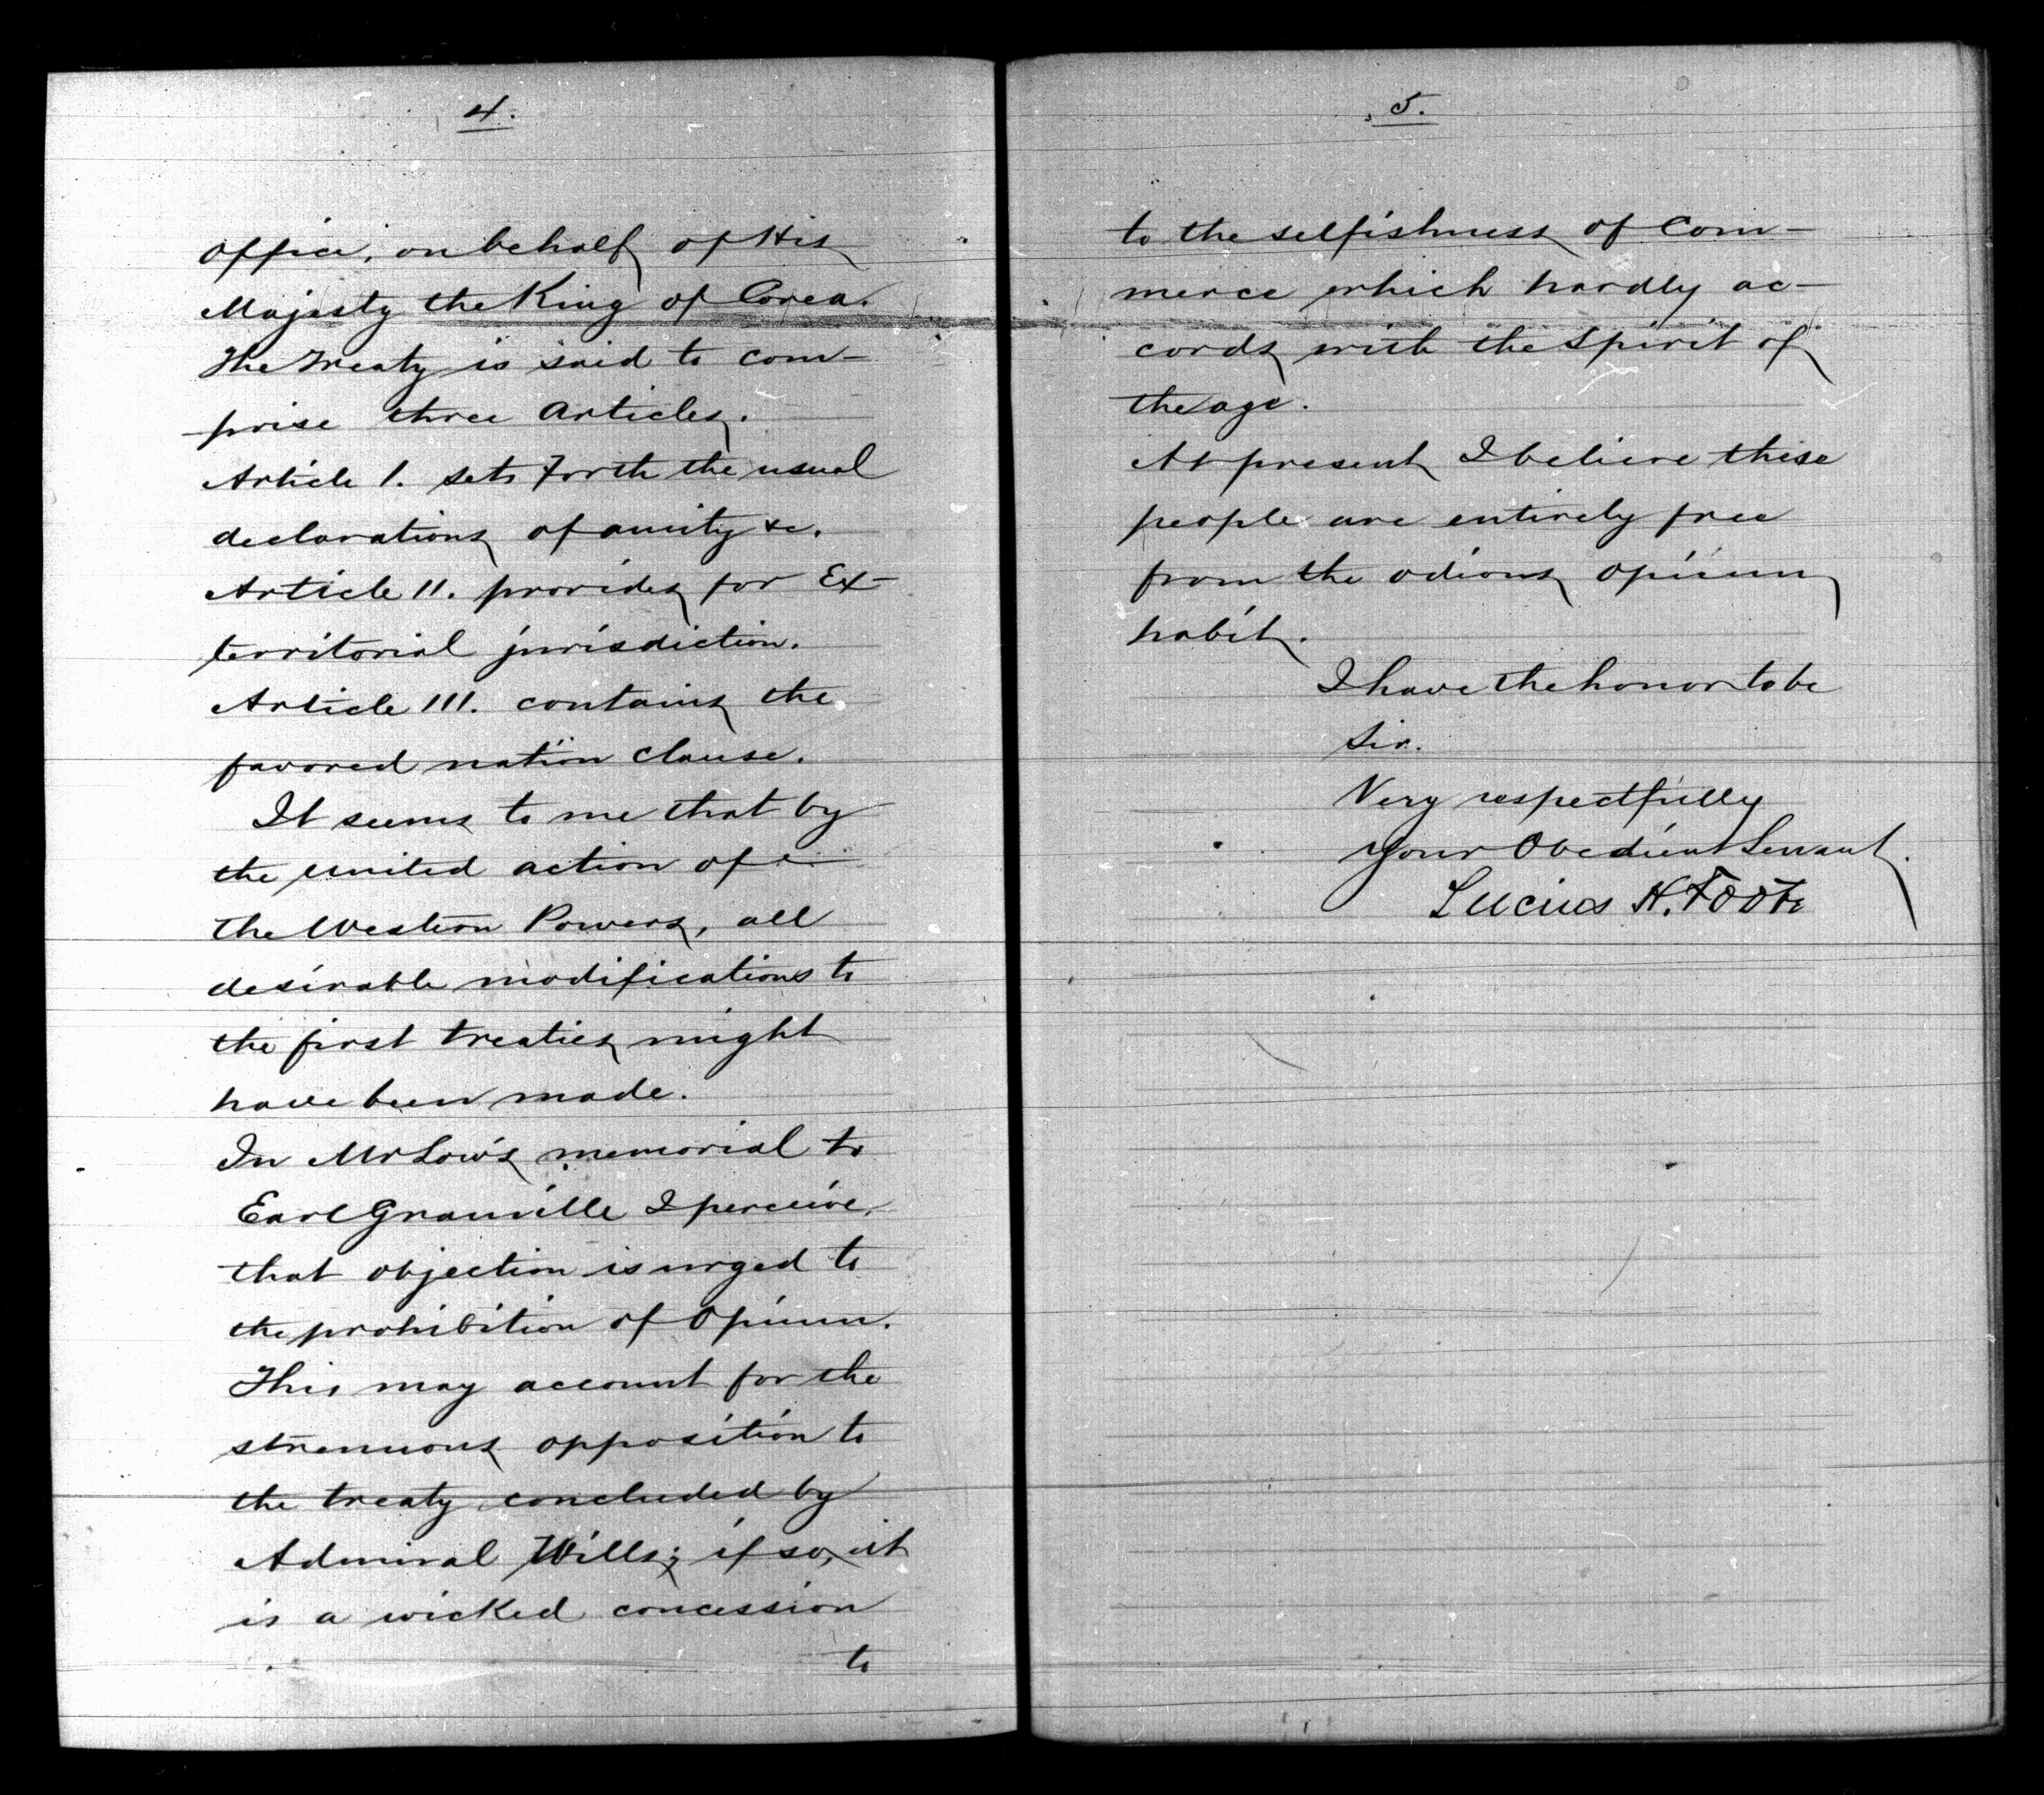 4.
office, on behalf of His
Majesty the King of Corea.
The Treaty is said to com-
prise three Articles.
Article I. sets Forth the usual
declarations of amity &c.
Article II. provides for Ex-
territorial jurisdiction.
Article III. contains the
favored nation Clause.
It seems to me that by
the United action of
the Western Powers, all
desirable modifications to
the first treaties might
have been made.
In Mr Low's memorial to
Earl Granville I perceive,
that objection is urged to
the prohibition of Opium.
This may account for the
strenuous opposition to
the treaty concluded by
Admiral Wills; if so, it
is a wicked concession
to
5.
to the selfishness of Com-
merce which hardly ac-
cords with the Spirit of
the age.
At present I believe these
people are entirely free
from the odious opium
habit.
I have the honor to be
Sir.
Very respectfully
Your Obedient Servant.
Lucius H. Foote